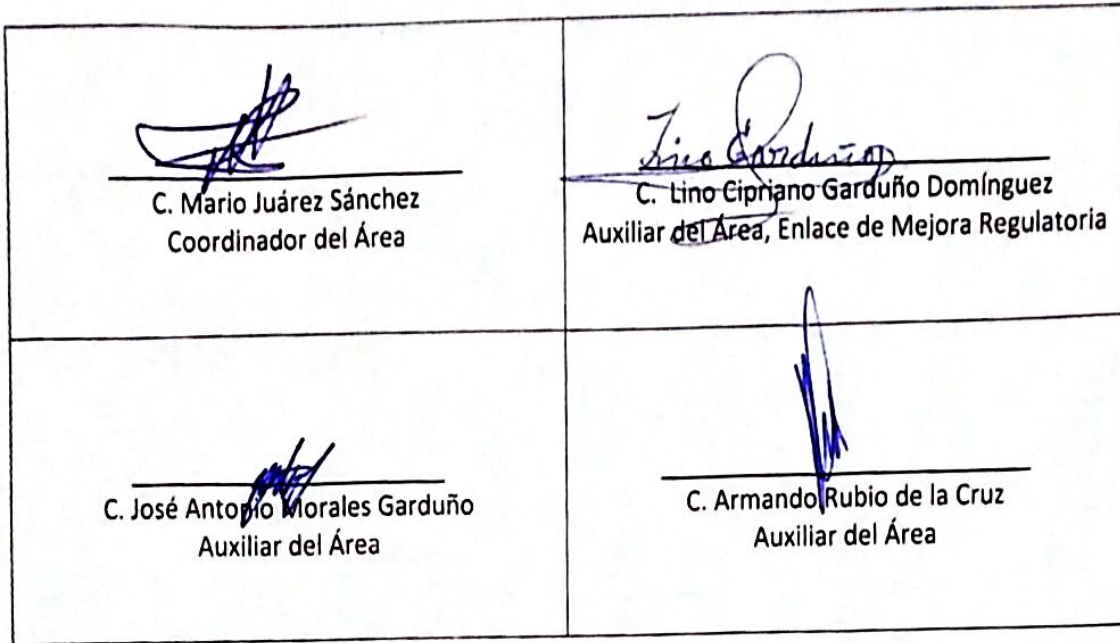 C. Mario Juárez Sánchez
Coordinador del Área
Lino Garduño
C. Lino Cipriano Garduño Domínguez
Auxiliar del Área, Enlace de Mejora Regulatoria
C. José Antonio Morales Garduño
Auxiliar del Área
C. Armando Rubio de la Cruz
Auxiliar del Área